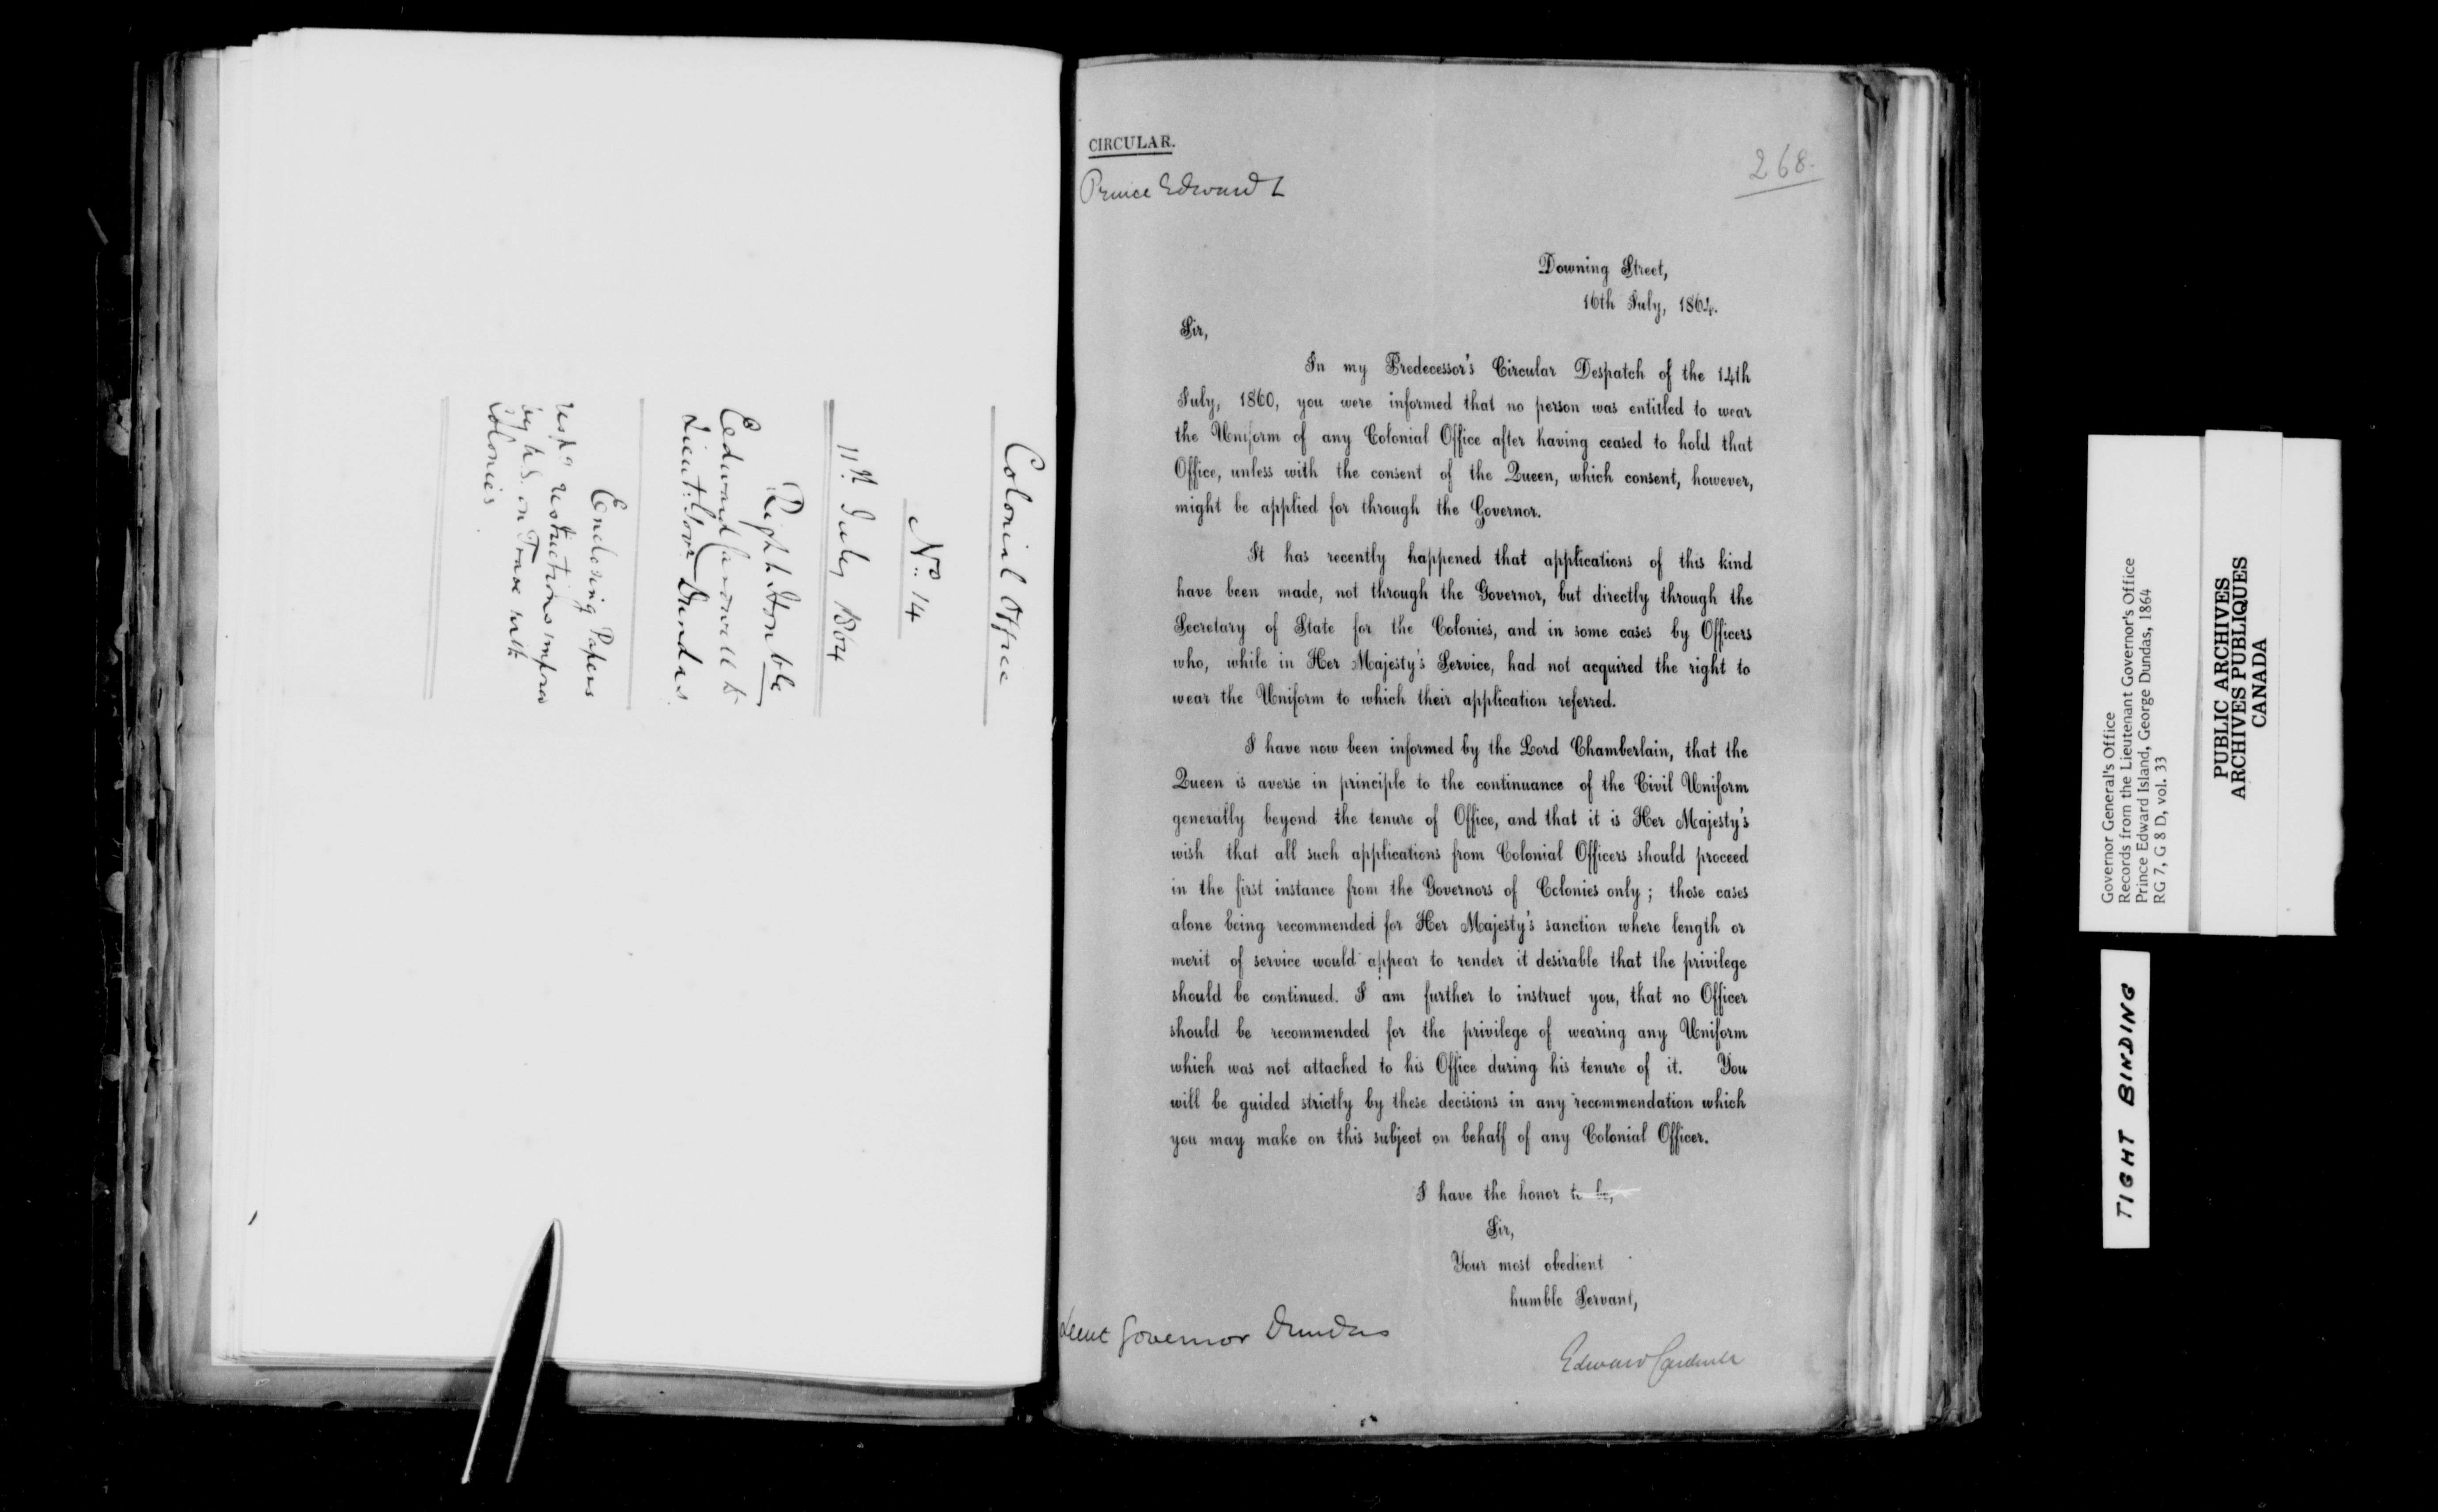 Colonial Office
No. 14
11th July 1864
Right Honble
Edward Cardwell to
Lieut: Govr Dundas
Enclosing Papers
resp'g restrictions impos
by U.S. on Trade with
Colonies
CIRCULAR.
Prince Edward I
268.
Downing Street,
16th July, 1864.
Sir,
In my Predecessor's Circular Despatch of the 14th
July, 1860, you were informed that no person was entitled to wear
the Uniform of any Colonial Office after having ceased to hold that
Office, unless with the consent of the Queen, which consent, however,
might be applied for through the Governor.
It has recently happened that applications of this kind
have been made, not through the Governor, but directly through the
Secretary of State for the Colonies, and in some cases by Officers
who, while in Her Majesty's Service, had not acquired the right to
wear the Uniform to which their application referred.
I have now been informed by the Lord Chamberlain, that the
Queen is averse in principle to the continuance of the Civil Uniform
generally beyond the tenure of Office, and that it is Her Majesty's
wish that all such applications from Colonial Officers should proceed
in the first instance from the Governors of Colonies only; those cases
alone being recommended for Her Majesty's sanction where length or
merit of service would appear to render it desirable that the privilege
should be continued. I am further to instruct you, that no Officer
should be recommended for the privilege of wearing any Uniform
which was not attached to his Office during his tenure of it. You
will be guided strictly by these decisions in any recommendation which
you may make on this subject on behalf of any Colonial Officer.
I have the honor to be,
Sir,
Your most obedient
humble Servant,
Lieut Governor Dundas
Edward Cardwell
Governor General's Office
Records from the Lieutenant Governor's Office
Prince Edward Island, George Dundas, 1864
RG 7, G 8 D, vol. 33
PUBLIC ARCHIVES
ARCHIVES PUBLIQUES
CANADA
TIGHT BINDING